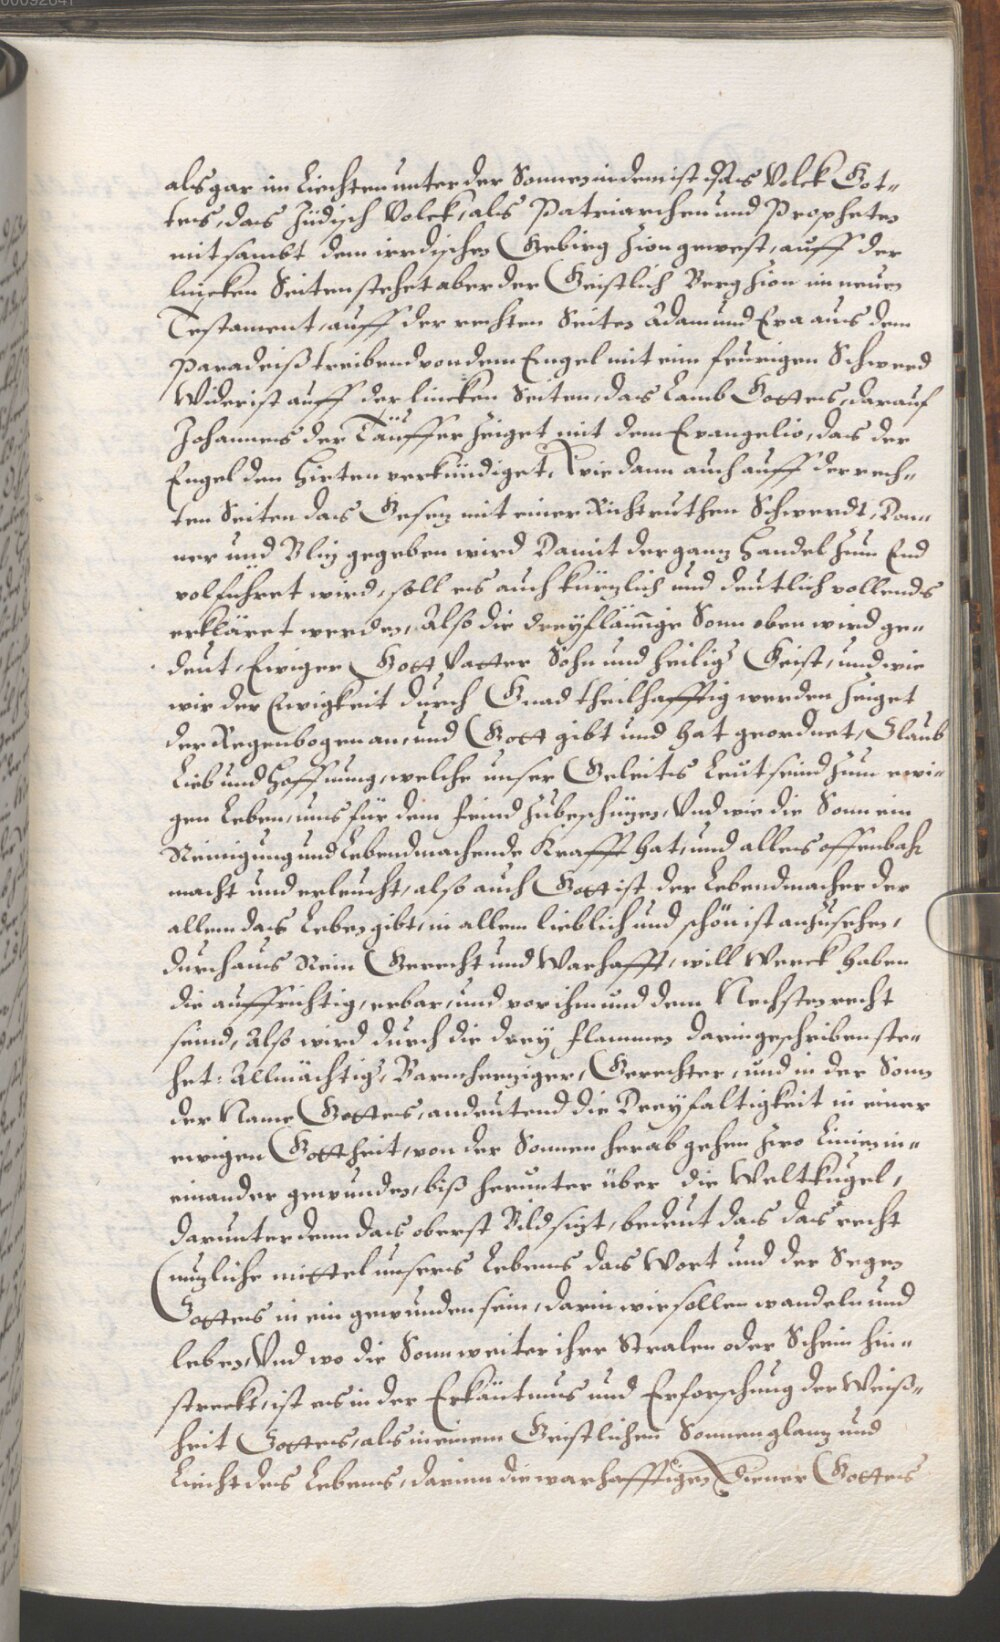 als gar im Liechten unter der Sonnen in dem ist das Volck Got-
tes, das Jüdisch Volck, als Patriarchen und Propheten
mit sambt dem irrdischen Gebirg Zion gewest, auff der
lincken Seiten stehet aber der Geistlich Berg Zion im neuen
Testament, auff der rechten Seiten Adam und Eva aus dem
Paradeiß treibend von dem Engel mit eim feurigen Schwerd
Wider ist auff der lincken Seiten, das Lamb Gottes, darauf
Johannes der Täuffer zeiget mit dem Evangelio, das der
Engel den Hirten verkündiget, wie dann auch auff der rech-
ten Seiten das Gesetz mit einer Richtruthen Schwerdt, Don-
ner und Blitz gegeben wird Damit der gantz Handel zum End
volführet wird, soll es auch kürtzlich und deutlich vollends
erkläret werden, Also die dreyflämige Sonn oben wird ge-
deut, Ewiger Gott Vatter Sohn und heilig Geist, und wie
wir der Ewigkeit durch Gnad theilhafftig werden zeiget
der Regenbogen an, und Gott gibt und hat geordnet, Glaub
Lieb und Hoffnung, welche unser Geleits Leut seind zum ewi-
gen Leben, uns für dem feind zubeschützen, Und wie die Sonn ein
Reinigung und Lebendmachende Krafft hat, und alles offenbahr
macht und erleucht, also auch Gott ist der Lebendmacher der
allem das Leben gibt, in allem lieblich und schön ist anzusehen,
durchaus Rein Gerecht und Warhafft, will Werck haben
die auffrichtig, erbar, und vor ihm und dem Nechsten recht
seind, Also wird durch die drey flammen darin geschriben ste-
het: Allmächtig, Barmhertziger, Gerechter, und in der Sonn
der Name Gottes, andeutend die Dreyfaltigkeit in einer
ewigen Gottheit, von der Sonnen herab gehen zwo Linien in-
einander gewunden, biß herunter über die Weltkugel,
darunter denn das oberst Bild sitzt, bedeut das das recht
nutzliche mittel unsers Lebens das Wort und der Segen
Gottes in ein gewunden sein, darin wir sollen wandeln und
leben, Und wo die Sonn weiter ihre Stralen oder Schein hin-
streckt, ist es in der Erkäntnus und Erforschung der Weiß-
heit Gottes, als in einem Geistlichen Sonnenglantz und
Liecht des Lebens, darinn die warhafftigen Diener Gottes